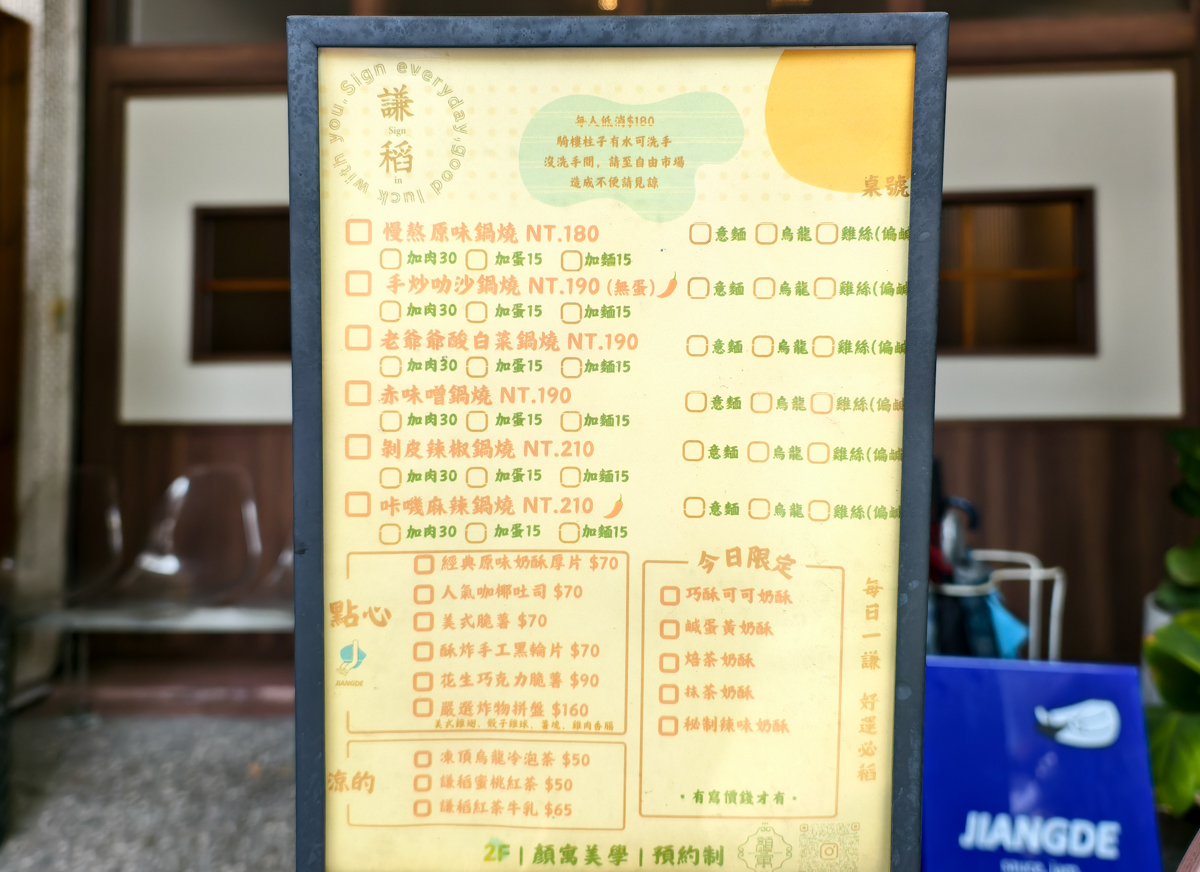 Sign everyday, good luck with you.
謙
Sign
稻
in
每人低消$180
騎樓柱子有水可洗手
沒洗手間，請至自由市場
造成不便請見諒
桌號
慢熬原味鍋燒 NT.180 意麵 烏龍 雞絲(偏鹹
加肉30 加蛋15 加麵15
手炒叻沙鍋燒 NT.190 (無蛋) 意麵 烏龍 雞絲(偏鹹
加肉30 加蛋15 加麵15
老爺爺酸白菜鍋燒 NT.190 意麵 烏龍 雞絲(偏鹹
加肉30 加蛋15 加麵15
赤味噌鍋燒 NT.190 意麵 烏龍 雞絲(偏鹹
加肉30 加蛋15 加麵15
剝皮辣椒鍋燒 NT.210 意麵 烏龍 雞絲(偏鹹
加肉30 加蛋15 加麵15
咔嘰麻辣鍋燒 NT.210 意麵 烏龍 雞絲(偏鹹
加肉30 加蛋15 加麵15
點心
JIANGDE
經典原味奶酥厚片 $70
人氣咖椰吐司 $70
美式脆薯 $70
酥炸手工黑輪片 $70
花生巧克力脆薯 $90
嚴選炸物拼盤 $160
美式雞翅、骰子雞球、薯塊、雞肉香腸
涼的
凍頂烏龍冷泡茶 $50
謙稻蜜桃紅茶 $50
謙稻紅茶牛乳 $65
今日限定
巧酥可可奶酥
鹹蛋黃奶酥
焙茶奶酥
抹茶奶酥
秘制辣味奶酥
·有寫價錢才有·
每日一謙 好運必稻
2F | 顏寓美學 | 預約制
JIANGDE